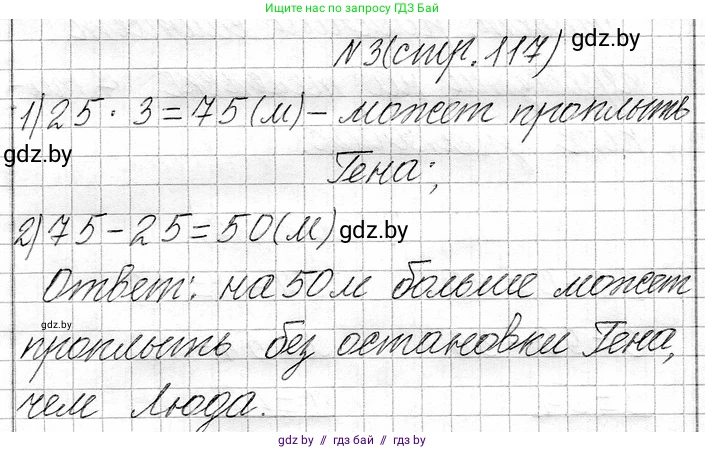 Ищите нас по запросу ГДЗ Бай
№3(стр. 117) gdz.by
1) 25 · 3 = 75 (м) – может проплыть
gdz.by
Гена;
2) 75 – 25 = 50 (м) gdz.by
Ответ: на 50м больше может
gdz.by
проплыть без остановки Гена,
чем Люда.
gdz by // гдз бай // гдз by